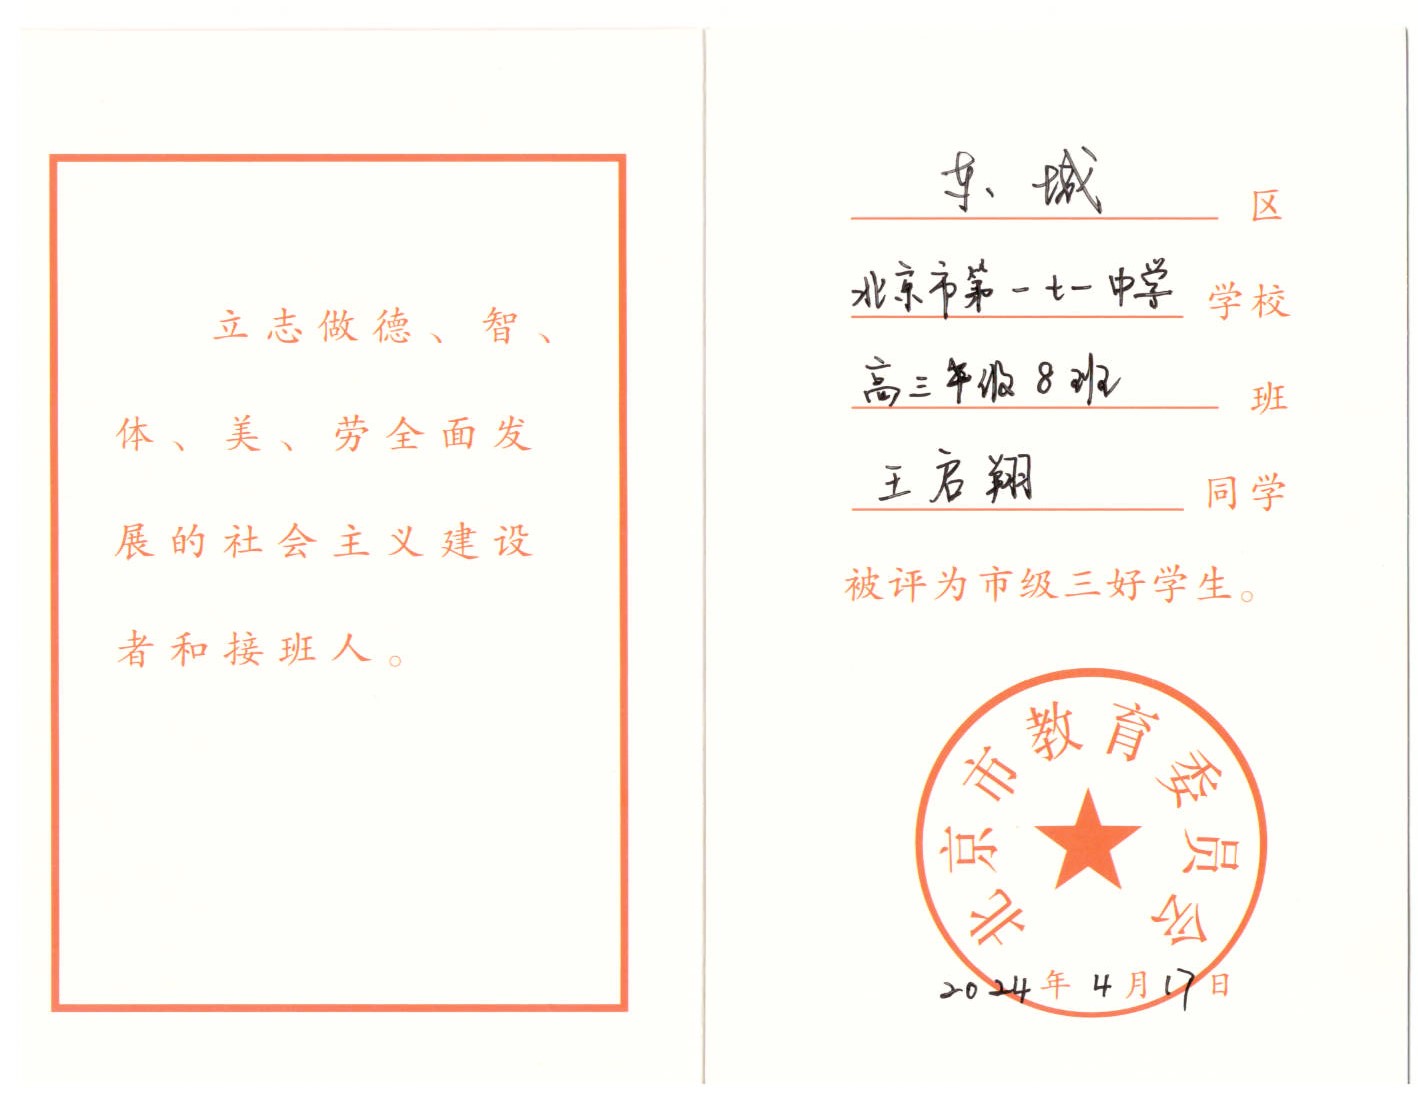 立志做德、智、
体、美、劳全面发
展的社会主义建设
者和接班人。
东城 区
北京市第一七一中学 学校
高三年级8班 班
王启翔 同学
被评为市级三好学生。
北京市教育委员会
2024年4月17日